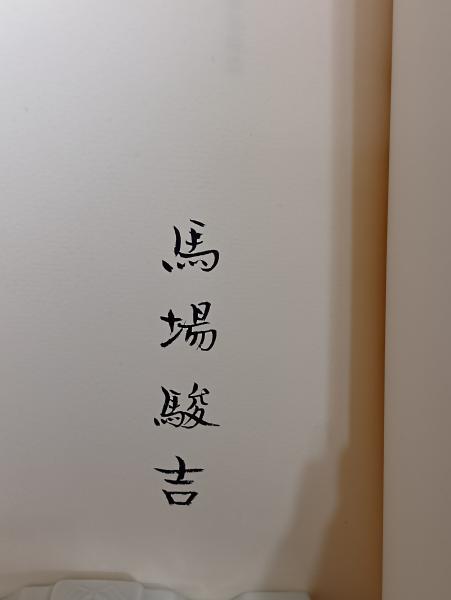 馬場駿吉